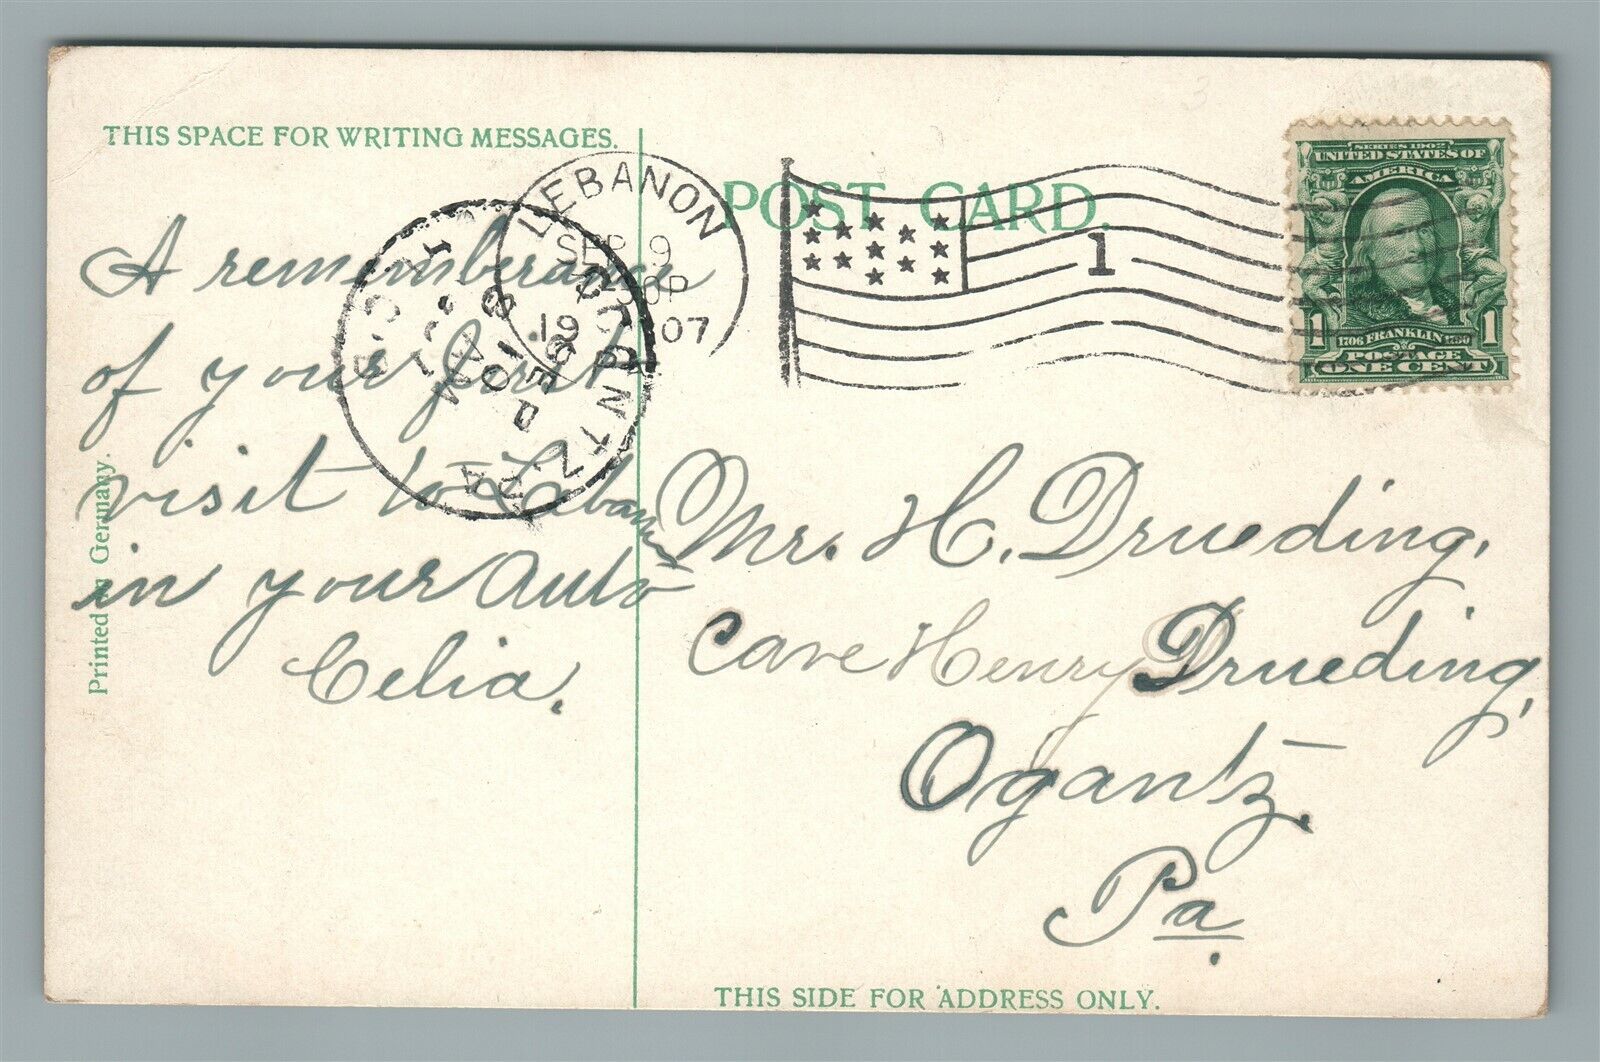 THIS SPACE FOR WRITING MESSAGES.
POST CARD.
LEBANON
SEP 9
30P
19 07
1
OGONTZ
PA.
REC'D
SEP
10
8 AM
1907
SERIES 1902
UNITED STATES OF
AMERICA
1 1706 FRANKLIN 1790 1
POSTAGE
ONE CENT
A rememberance
of your first
visit to Lebanon
in your Auto
Celia.
Mr. H. Drueding,
Care Henry Drueding,
Ogantz.
Pa.
Printed in Germany.
THIS SIDE FOR ADDRESS ONLY.